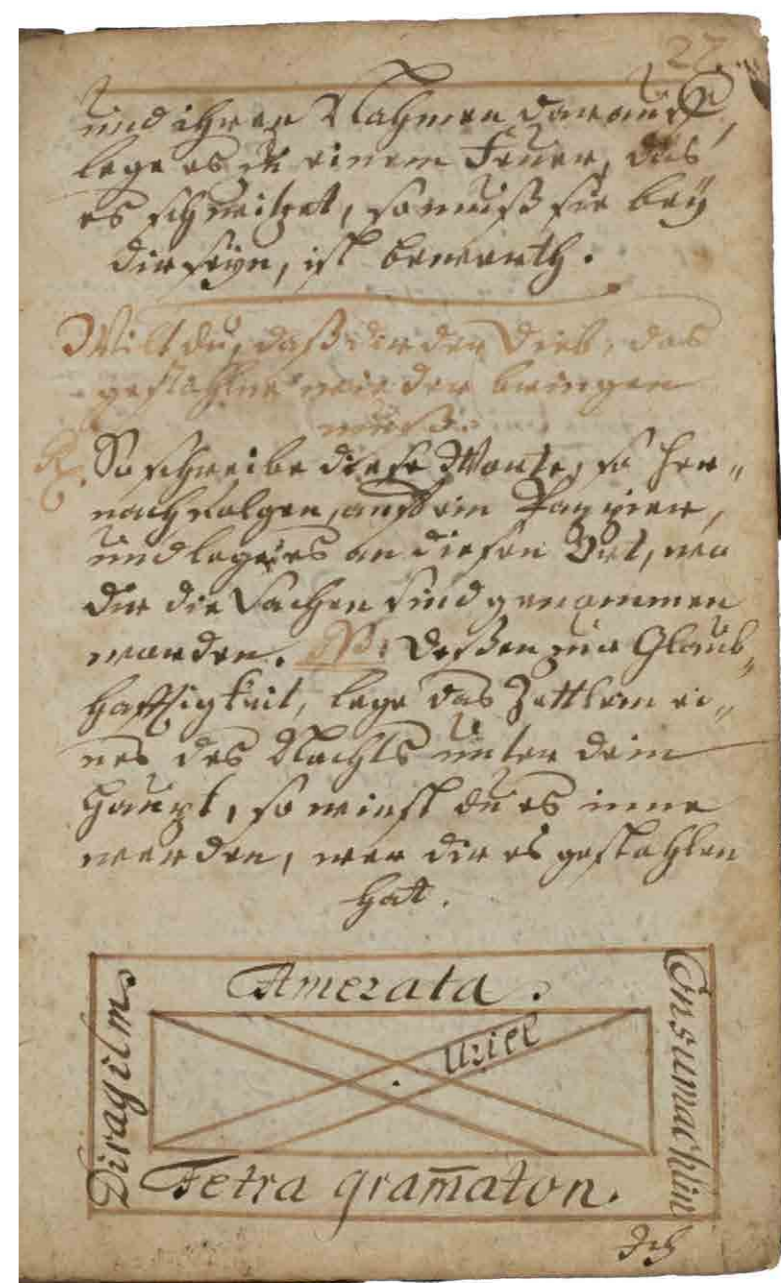 27.
und ihren Nahmen darauf,
lege es zu einem Feuer, das
es schwitzet, so muß sie bey
dir seyn, ist bewerth.
Wilt du, daß dir der Dieb, das
gestohlne wieder bringen
muß.
So schreibe diese Worte, so her„
nach folgen, auff ein Pappier,
und lege es an diesen Ort, wo
dir die Sachen sind genommen
worden. NB: Deßen zur Glaub„
hafftigkeit, lege das Zettlein ei„
nes des Nachts unter dein
Haupt, so wirst du es inne
werden, wer dir es gestohlen
hat.
Amerata.
Diragilm.
Uriel
Consumacklin
Tetra gram̅aton.